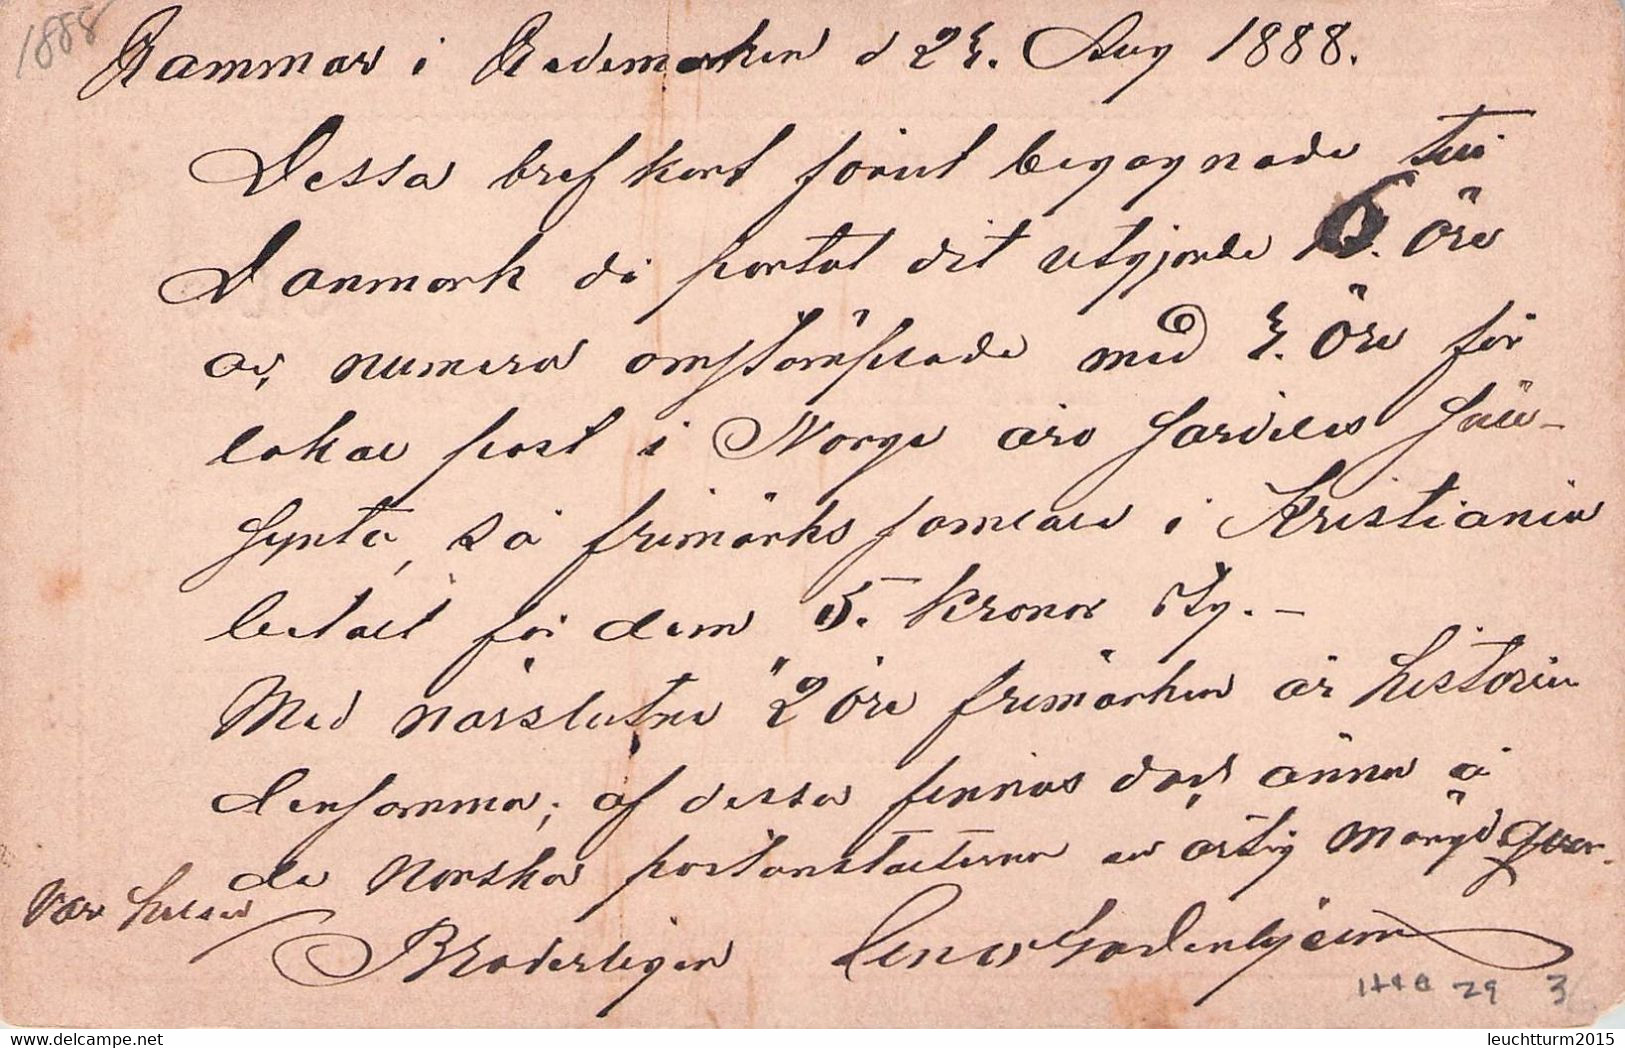 1888
Hammar i Hedemarken d 25. Aug 1888.
Dessa bref kort förut begagnade till
Danmark då portot dit utgjorde 6 Öre
numera omstämplade med 5. Öre för
lokal post i Norge äro särdeles säll-
synta, så frimärks samlare i Kristiania
betalt för dem 5. Kronor st. –
Med närslutne 2 öre frimärken är historien
densamma; af dessa finnas dock ännu å
de Norska postanstalterna en mängd qvar.
Vär helsad
Broderligen
29 3
leuchtturm2015